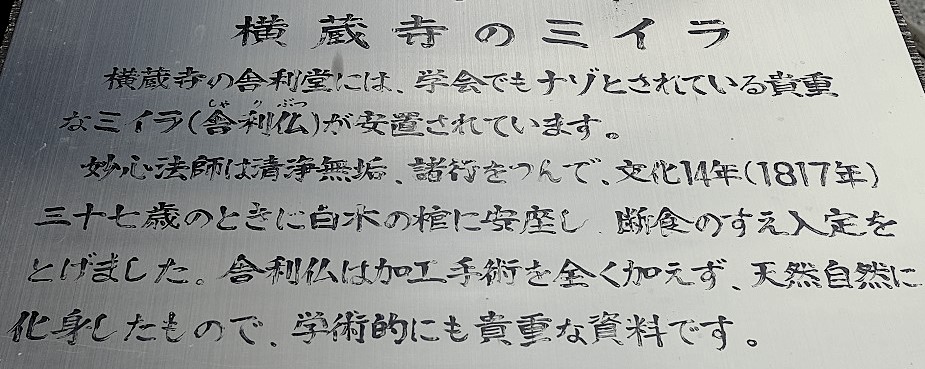 横蔵寺のミイラ
横蔵寺の舎利堂には、学会でもナゾとされている貴重
なミイラ(舎利仏)が安置されています。
妙心法師は清浄無垢、諸行をつんで、文化14年(1817年)
三十七歳のときに白木の棺に安座し 断食のすえ入定を
とげました。舎利仏は加工手術を全く加えず、天然自然に
化身したもので、学術的にも貴重な資料です。